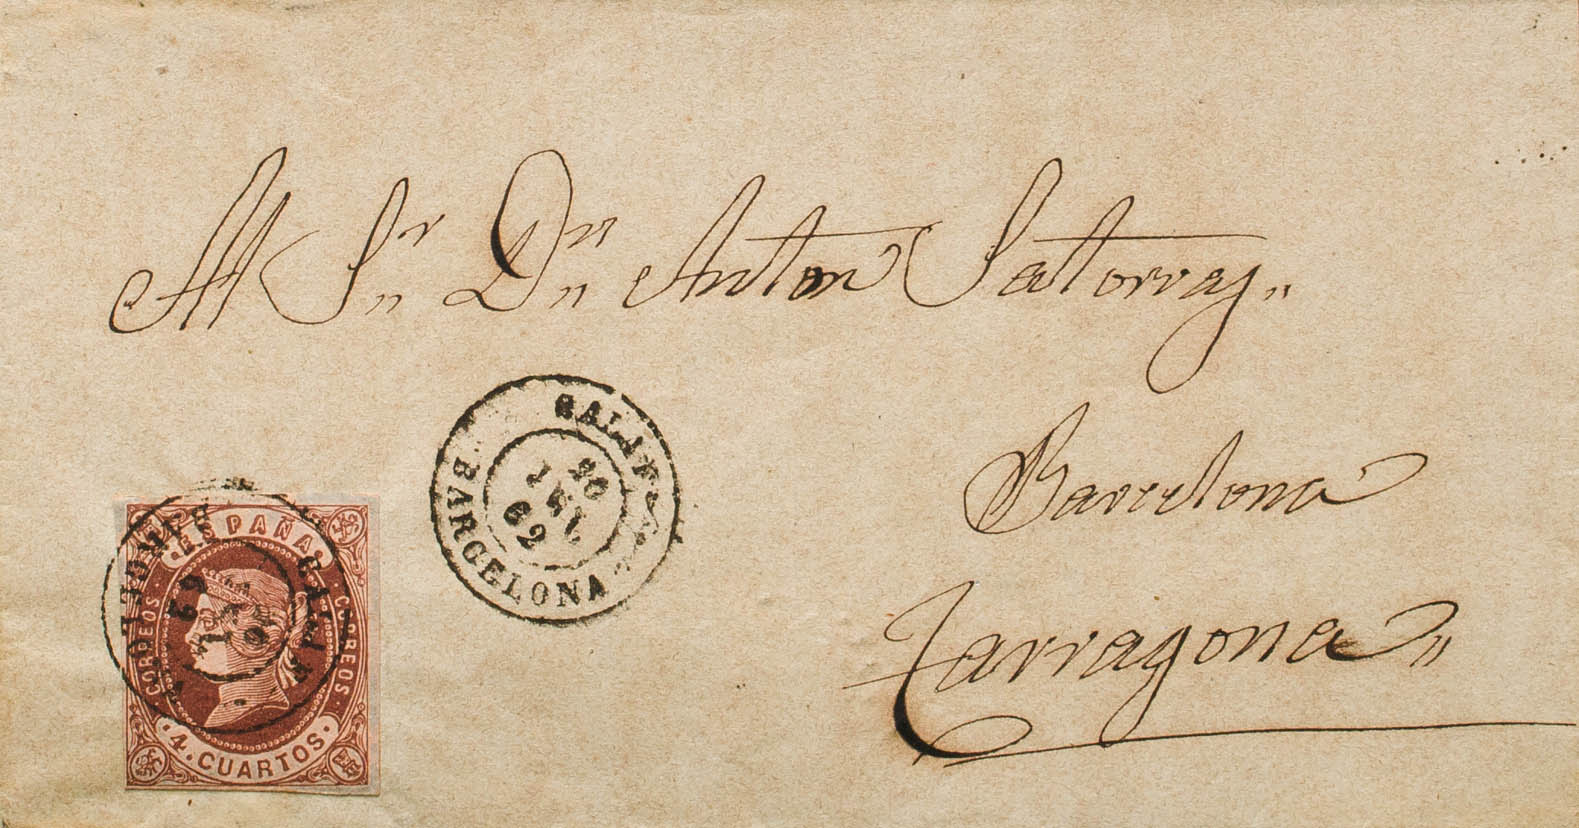 Al Sr. Dn. Anton Satorras
Barcelona
Tarragona
CALAF
20
62
BARCELONA
CALAF
62
BARCELONA
ESPAÑA
CORREOS
CORREOS
4. CUARTOS.